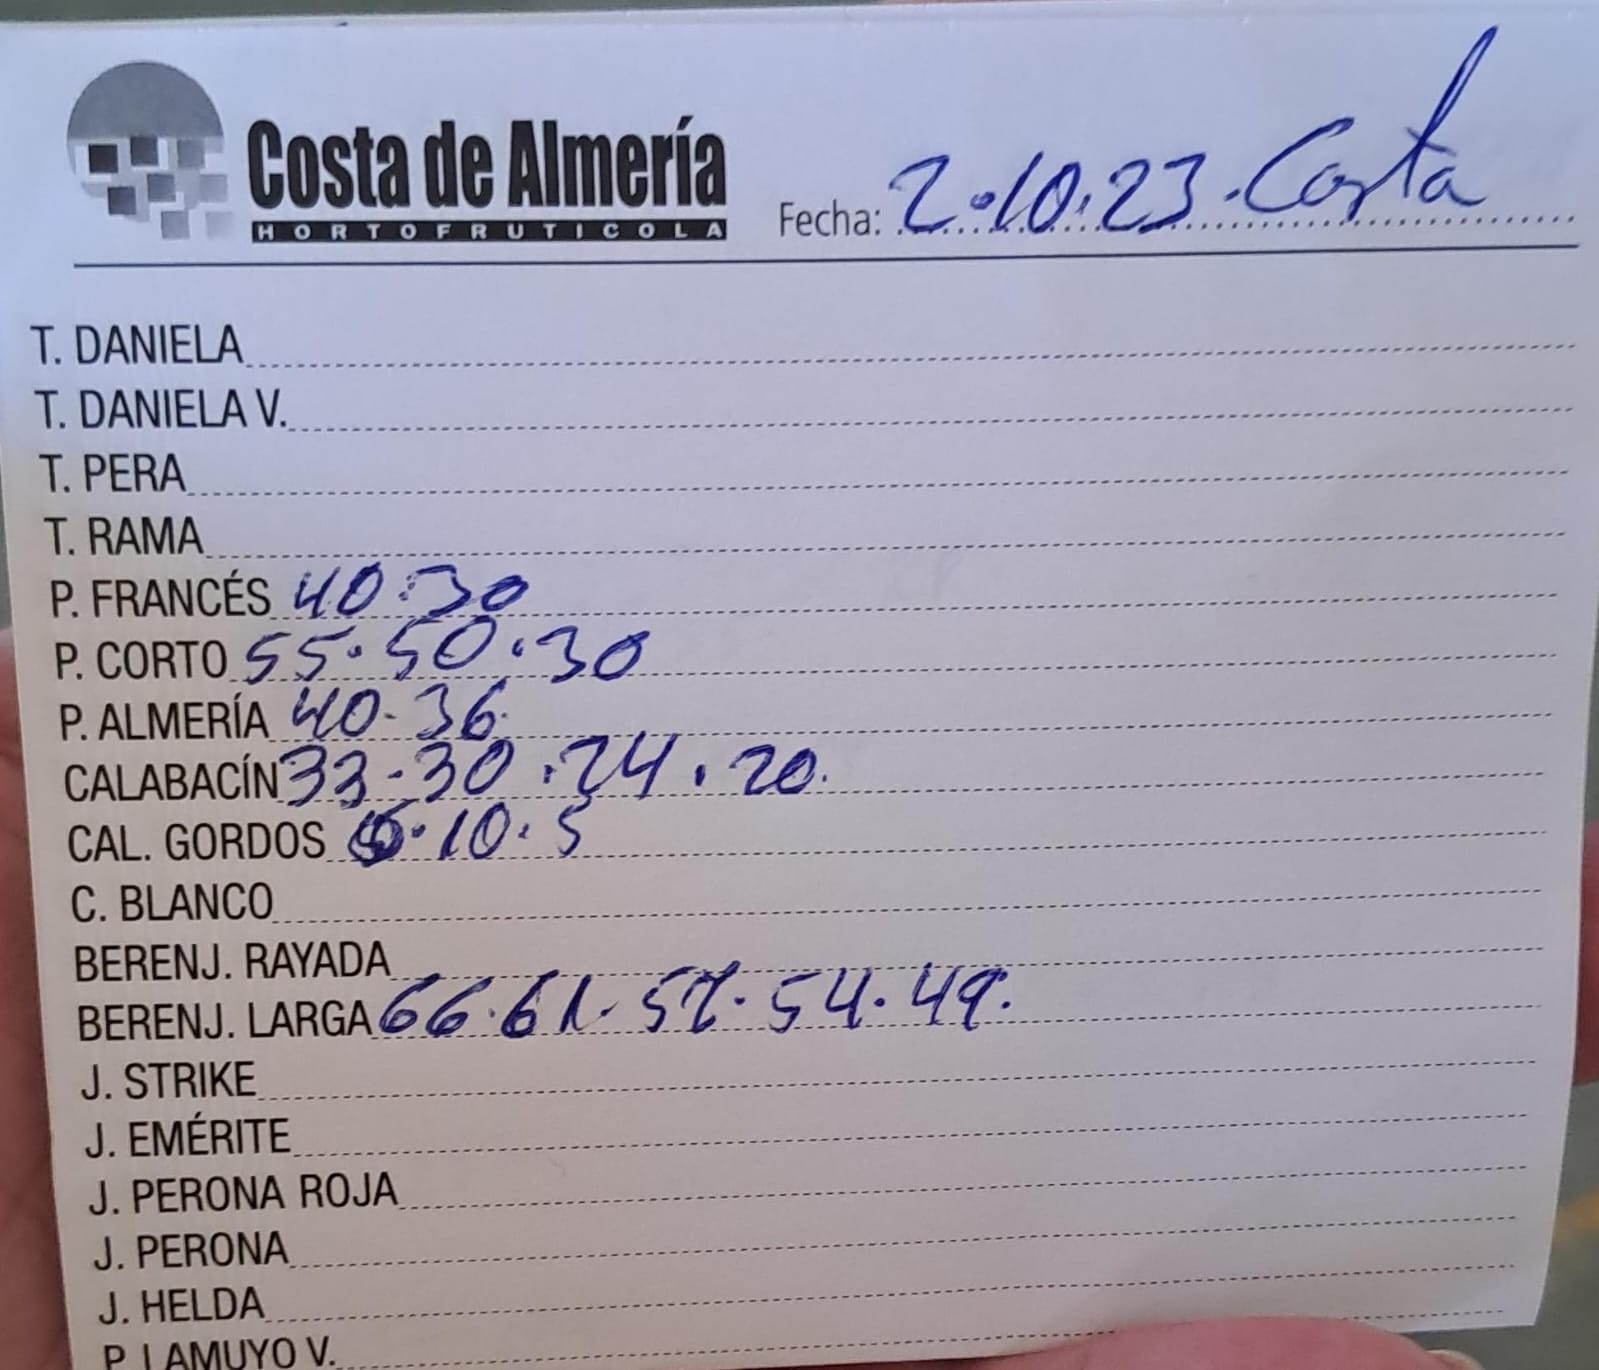 Costa de Almería
HORTOFRUTICOLA
Fecha: 2.10.23. Costa
T. DANIELA
T. DANIELA V.
T. PERA
T. RAMA
P. FRANCÉS 40.30
P. CORTO 55.50.30
P. ALMERÍA 40-36.
CALABACÍN 33-30.24.20.
CAL. GORDOS .10.5
C. BLANCO
BERENJ. RAYADA
BERENJ. LARGA 66.61.57.54.49.
J. STRIKE
J. EMÉRITE
J. PERONA ROJA
J. PERONA
J. HELDA
P. LAMUYO V.